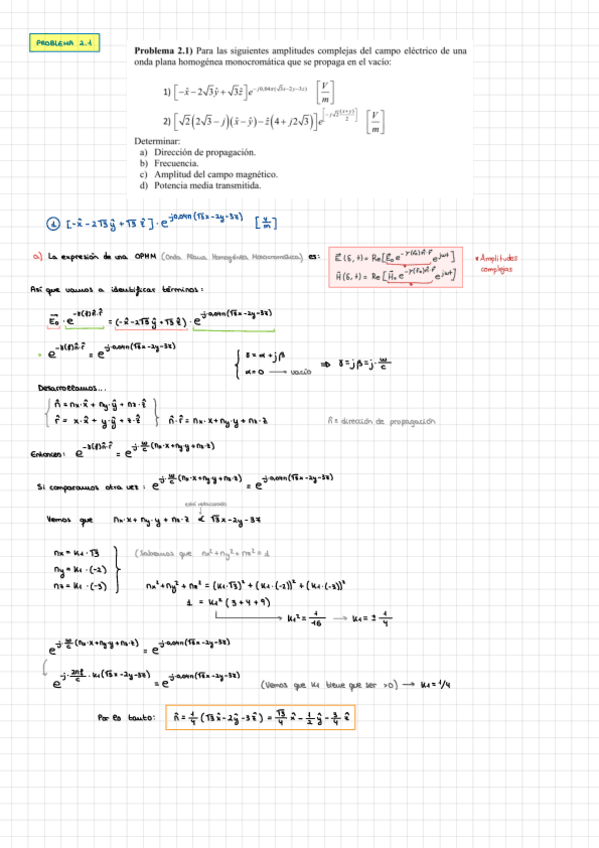 PROBLEMA 2.1
Problema 2.1) Para las siguientes amplitudes complejas del campo eléctrico de una
onda plana homogénea monocromática que se propaga en el vacío:
1) [-x̂ - 2√3ŷ + √3ẑ]e^{-j0,04π(√3x-2y-3z)} [V/m]
2) [√2(2√3 - j)(x̂ - ŷ) - ẑ(4 + j2√3)]e^{[-j√2(x+y)/2]} [V/m]
Determinar:
a) Dirección de propagación.
b) Frecuencia.
c) Amplitud del campo magnético.
d) Potencia media transmitida.
① [-x̂ - 2√3ŷ + √3 ẑ] · e^{-j0,04π(√3x-2y-3z)} [V/m]
a) La expresión de una OPHM (Onda Plana Homogénea Monocromática) es:
E⃗(r̄,t) = Re[E⃗₀e^{-γ(f₀)n̂·r̄} e^{jωt}]
H⃗(r̄,t) = Re[H⃗₀e^{-γ(f₀)n̂·r̄} e^{jωt}]
* Amplitudes
complejas
Así que vamos a identificar términos:
E⃗₀ · e^{-γ(f)n̂·r̄} = (-x̂ - 2√3ŷ + √3 ẑ) · e^{-j0,04π(√3x-2y-3z)}
e^{-γ(f)n̂·r̄} = e^{-j0,04π(√3x-2y-3z)}
{ γ = α + jβ
α = 0 → vacío
⇒ γ = jβ = j · ω/c
Desarrollamos...
{ n̂ = nx·x̂ + ny·ŷ + nz·ẑ
r̄ = x·x̂ + y·ŷ + z·ẑ
n̂·r̄ = nx·x + ny·y + nz·z
n̂ = dirección de propagación
Entonces: e^{-γ(f)n̂·r̄} = e^{-j·ω/c(nx·x+ny·y+nz·z)}
Si comparamos otra vez: e^{-j·ω/c·(nx·x+ny·y+nz·z)} = e^{-j0,04π(√3x-2y-3z)}
Vemos que nx·x + ny·y + nz·z ∝ √3x - 2y - 3z
nx = K₁·√3
ny = K₁·(-2)
nz = K₁·(-3)
(Sabemos que nx² + ny² + nz² = 1
nx² + ny² + nz² = (K₁·√3)² + (K₁·(-2))² + (K₁·(-3))²
1 = K₁² (3 + 4 + 9)
K₁² = 1/16 → K₁ = ± 1/4
e^{-j·ω/c(nx·x+ny·y+nz·z)} = e^{-j0,04π(√3x-2y-3z)}
e^{-j·2πf/c·K₁(√3x-2y-3z)} = e^{-j0,04π(√3x-2y-3z)}
(Vemos que K₁ tiene que ser >0) → K₁ = 1/4
Por lo tanto: n̂ = 1/4 (√3x̂ - 2ŷ - 3ẑ) = √3/4 x̂ - 1/2 ŷ - 3/4 ẑ